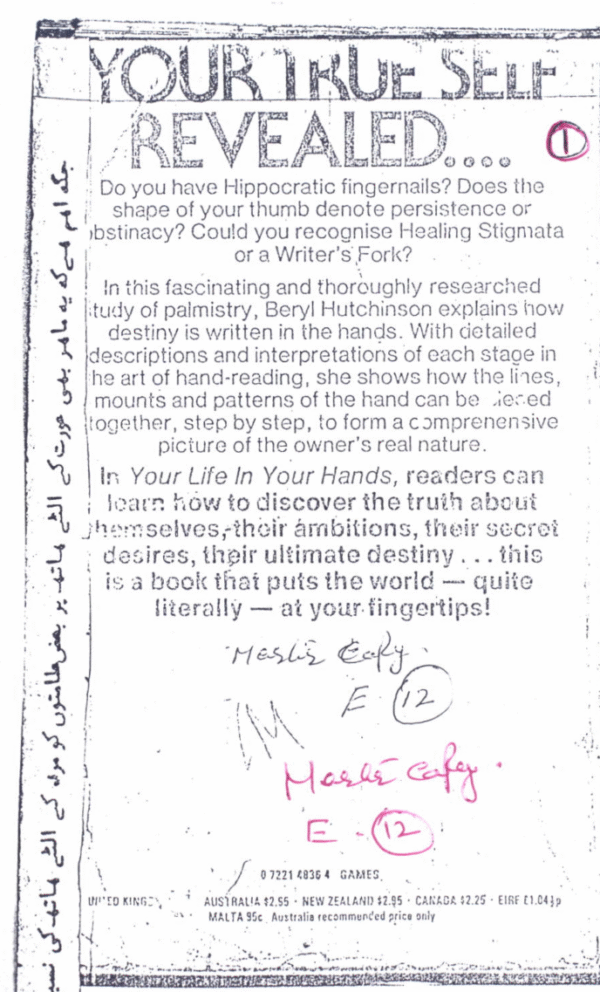 YOUR TRUE SELF
REVEALED....
1
Do you have Hippocratic fingernails? Does the
shape of your thumb denote persistence or
bstinacy? Could you recognise Healing Stigmata
or a Writer's Fork?
In this fascinating and thoroughly researched
tudy of palmistry, Beryl Hutchinson explains how
destiny is written in the hands. With detailed
descriptions and interpretations of each stage in
he art of hand-reading, she shows how the lines,
mounts and patterns of the hand can be
together, step by step, to form a comprehensive
picture of the owner's real nature.
In Your Life In Your Hands, readers can
learn how to discover the truth about
themselves, their ambitions, their secret
desires, their ultimate destiny ... this
is a book that puts the world — quite
literally — at your fingertips!
E 12
M
E - 12
0 7221 4836 4 GAMES
UNITED KINGD
AUSTRALIA $2.95 · NEW ZEALAND $2.95 · CANADA $2.25 · EIRE £1.04½p
MALTA 95c Australia recommended price only
جبکہ اہم ہے کہ یہ ماہر بھی عورت کے الٹے ہاتھ پر بعض علامتوں کو مرد کے الٹے ہاتھ کی